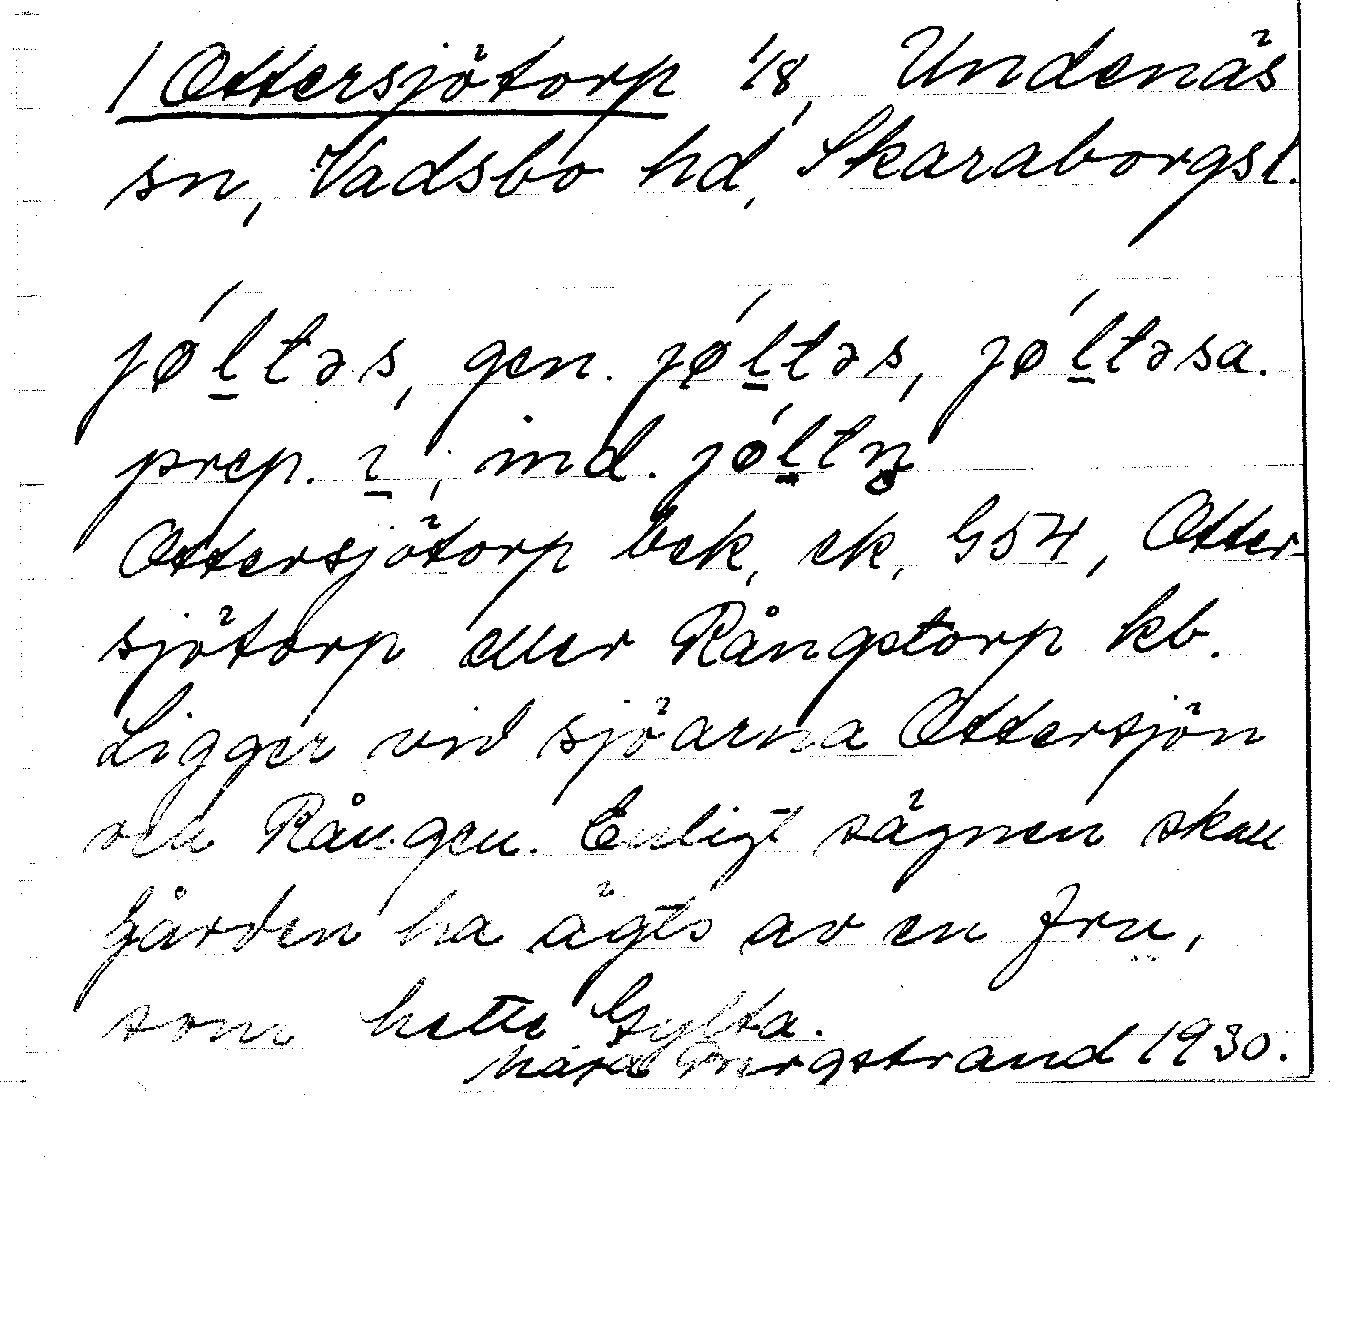 / Ottersjötorp 1/8, Undenäs
sn, Vadsbo hd, Skaraborgsl.
jǿl̲təs, gen. jǿl̲təs, jǿl̲təsa.
prep. ɩ̲, ind. jǿl̲tn̥
Ottersjötorp bek, ek, G54, Otter-
sjötorp eller Rångstorp kb.
Ligger vid sjöarna Ottersjön
och Rången. Enligt sägnen skall
gården ha ägts av en fru,
som hette Gylta.
Märta Bergstrand 1930.